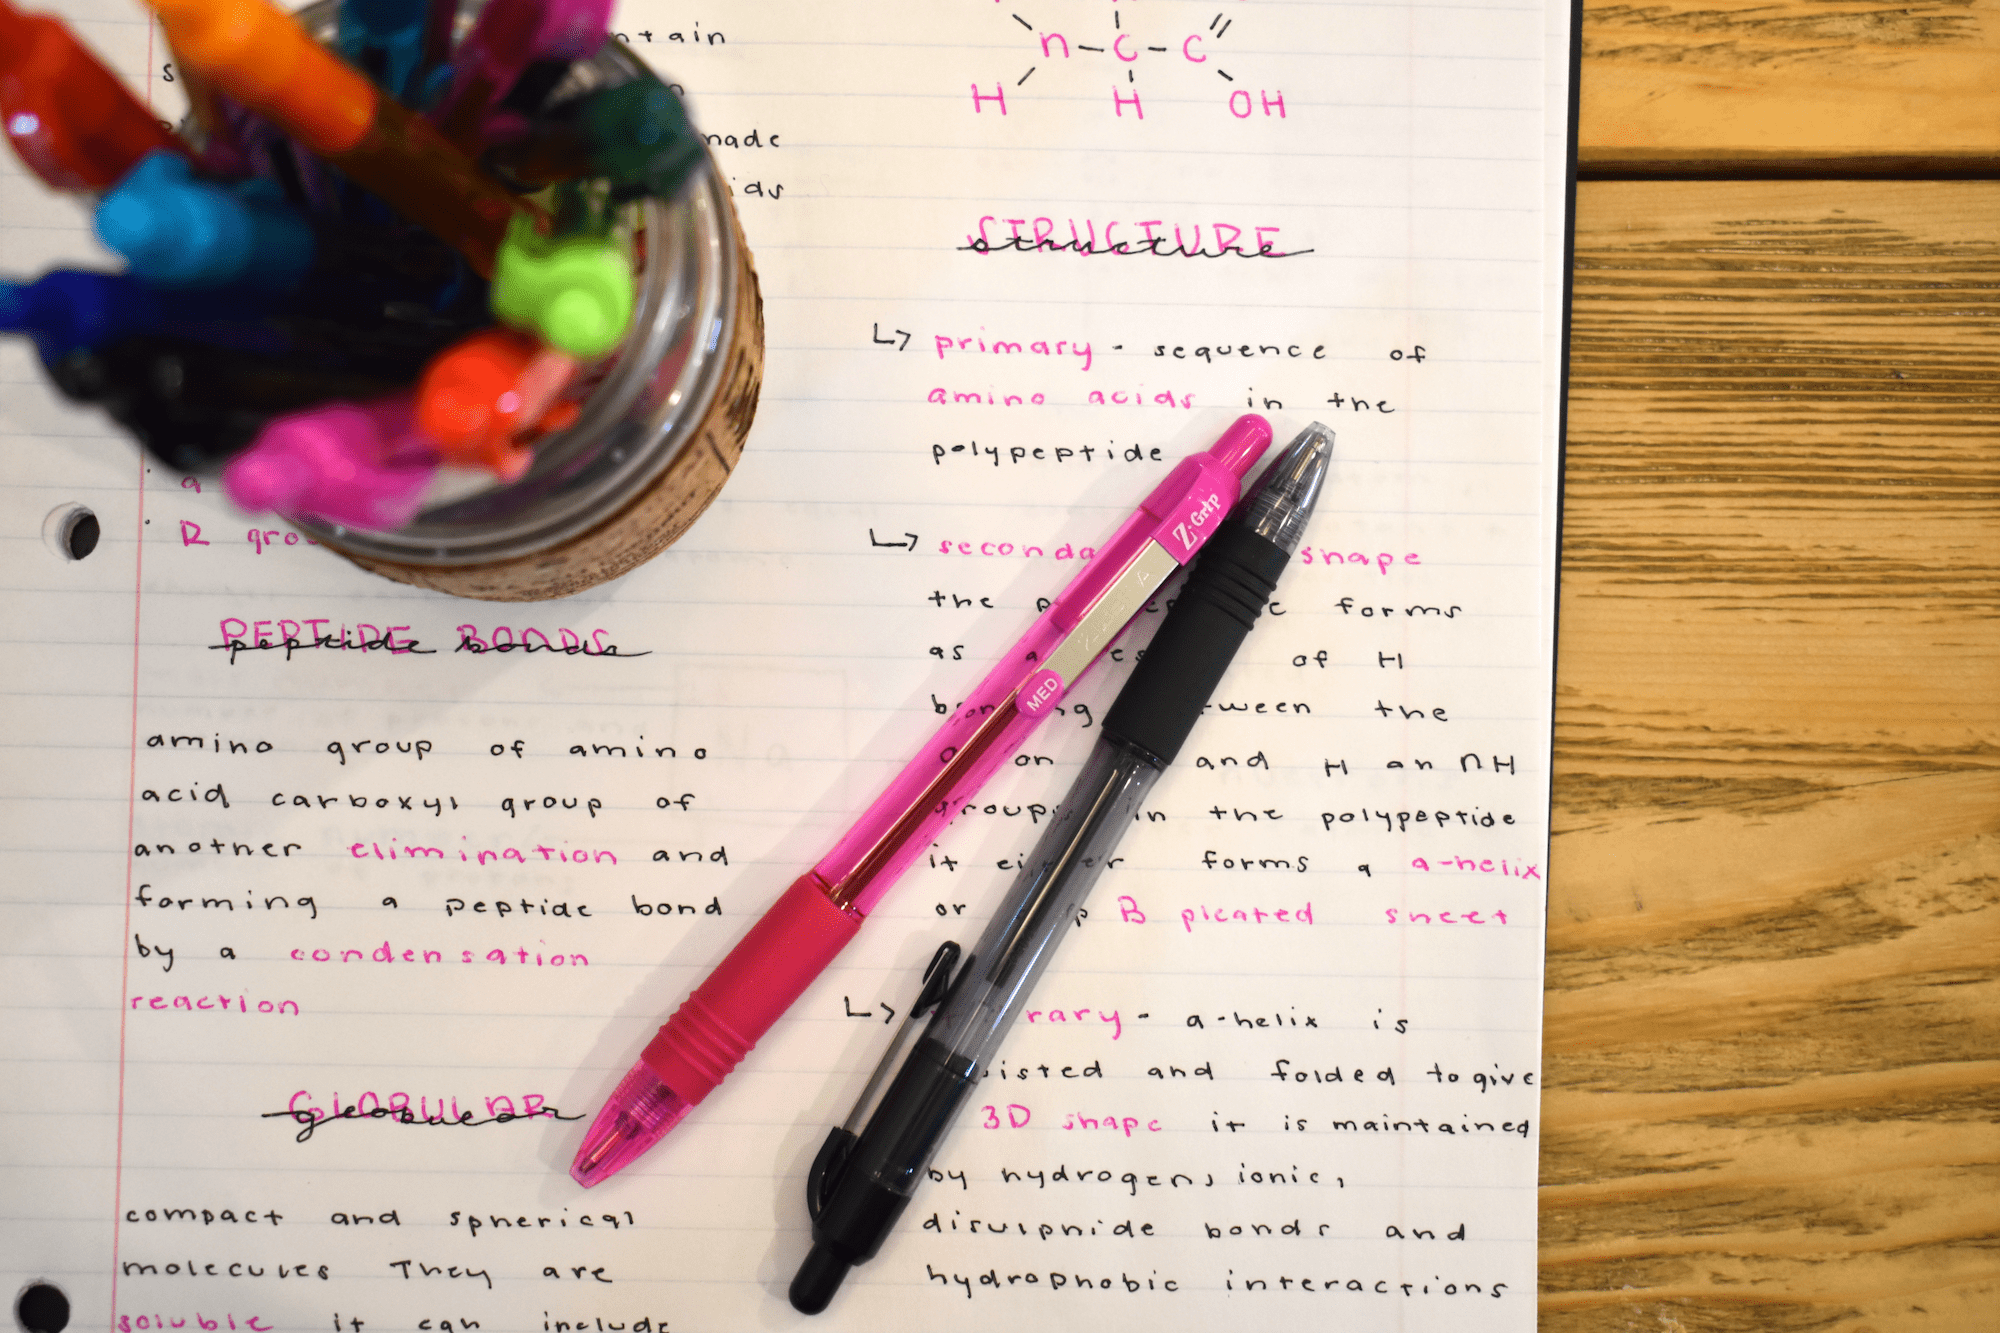 made
R
PEPTIDE BONDS
peptide bonds
amino group of amino
acid carboxyl group of
another elimination and
forming a peptide bond
by a condensation
reaction
GLOBULAR
globular
compact and spherical
molecules They are
soluble it can include
n - C - C
H H OH
STRUCTURE
structure
↳ primary - sequence of
amino acids in the
polypeptide
↳ shape
the forms
as a of H
the
on and H on NH
groups in the polypeptide
it either forms a a-helix
or B pleated sheet
↳ - a-helix is
and folded to give
3D shape it is maintained
by hydrogen, ionic,
disulphide bonds and
hydrophobic interactions
Z-Grip
MED